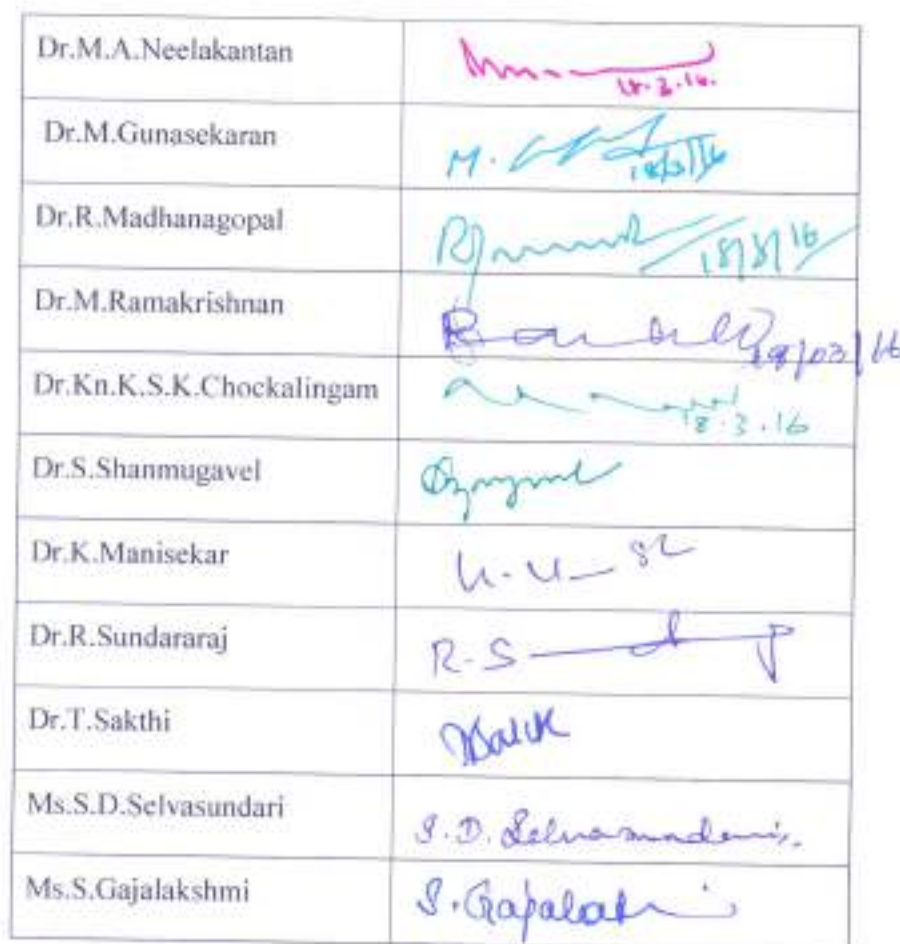 Dr.M.A.Neelakantan
18.3.16.
Dr.M.Gunasekaran M.
18/3/16
Dr.R.Madhanagopal 18/3/16
Dr.M.Ramakrishnan
18/03/16
Dr.Kn.K.S.K.Chockalingam
18.3.16
Dr.S.Shanmugavel
Dr.K.Manisekar
Dr.R.Sundararaj R-S
Dr.T.Sakthi
Ms.S.D.Selvasundari S.D. Selvasundari
Ms.S.Gajalakshmi S.Gajalakshmi